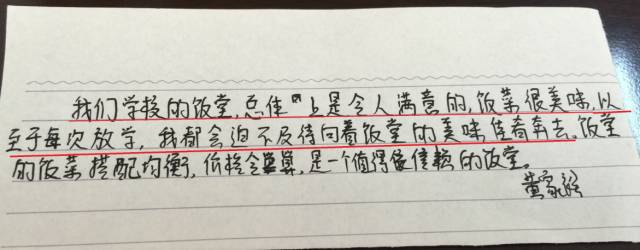 我们学校的饭堂，总体上是令人满意的，饭菜很美味，以
至于每次放学，我都会迫不及待向着饭堂的美味佳肴奔去。饭堂
的饭菜搭配均衡，价格合算，是一个值得信赖的饭堂。
黄家